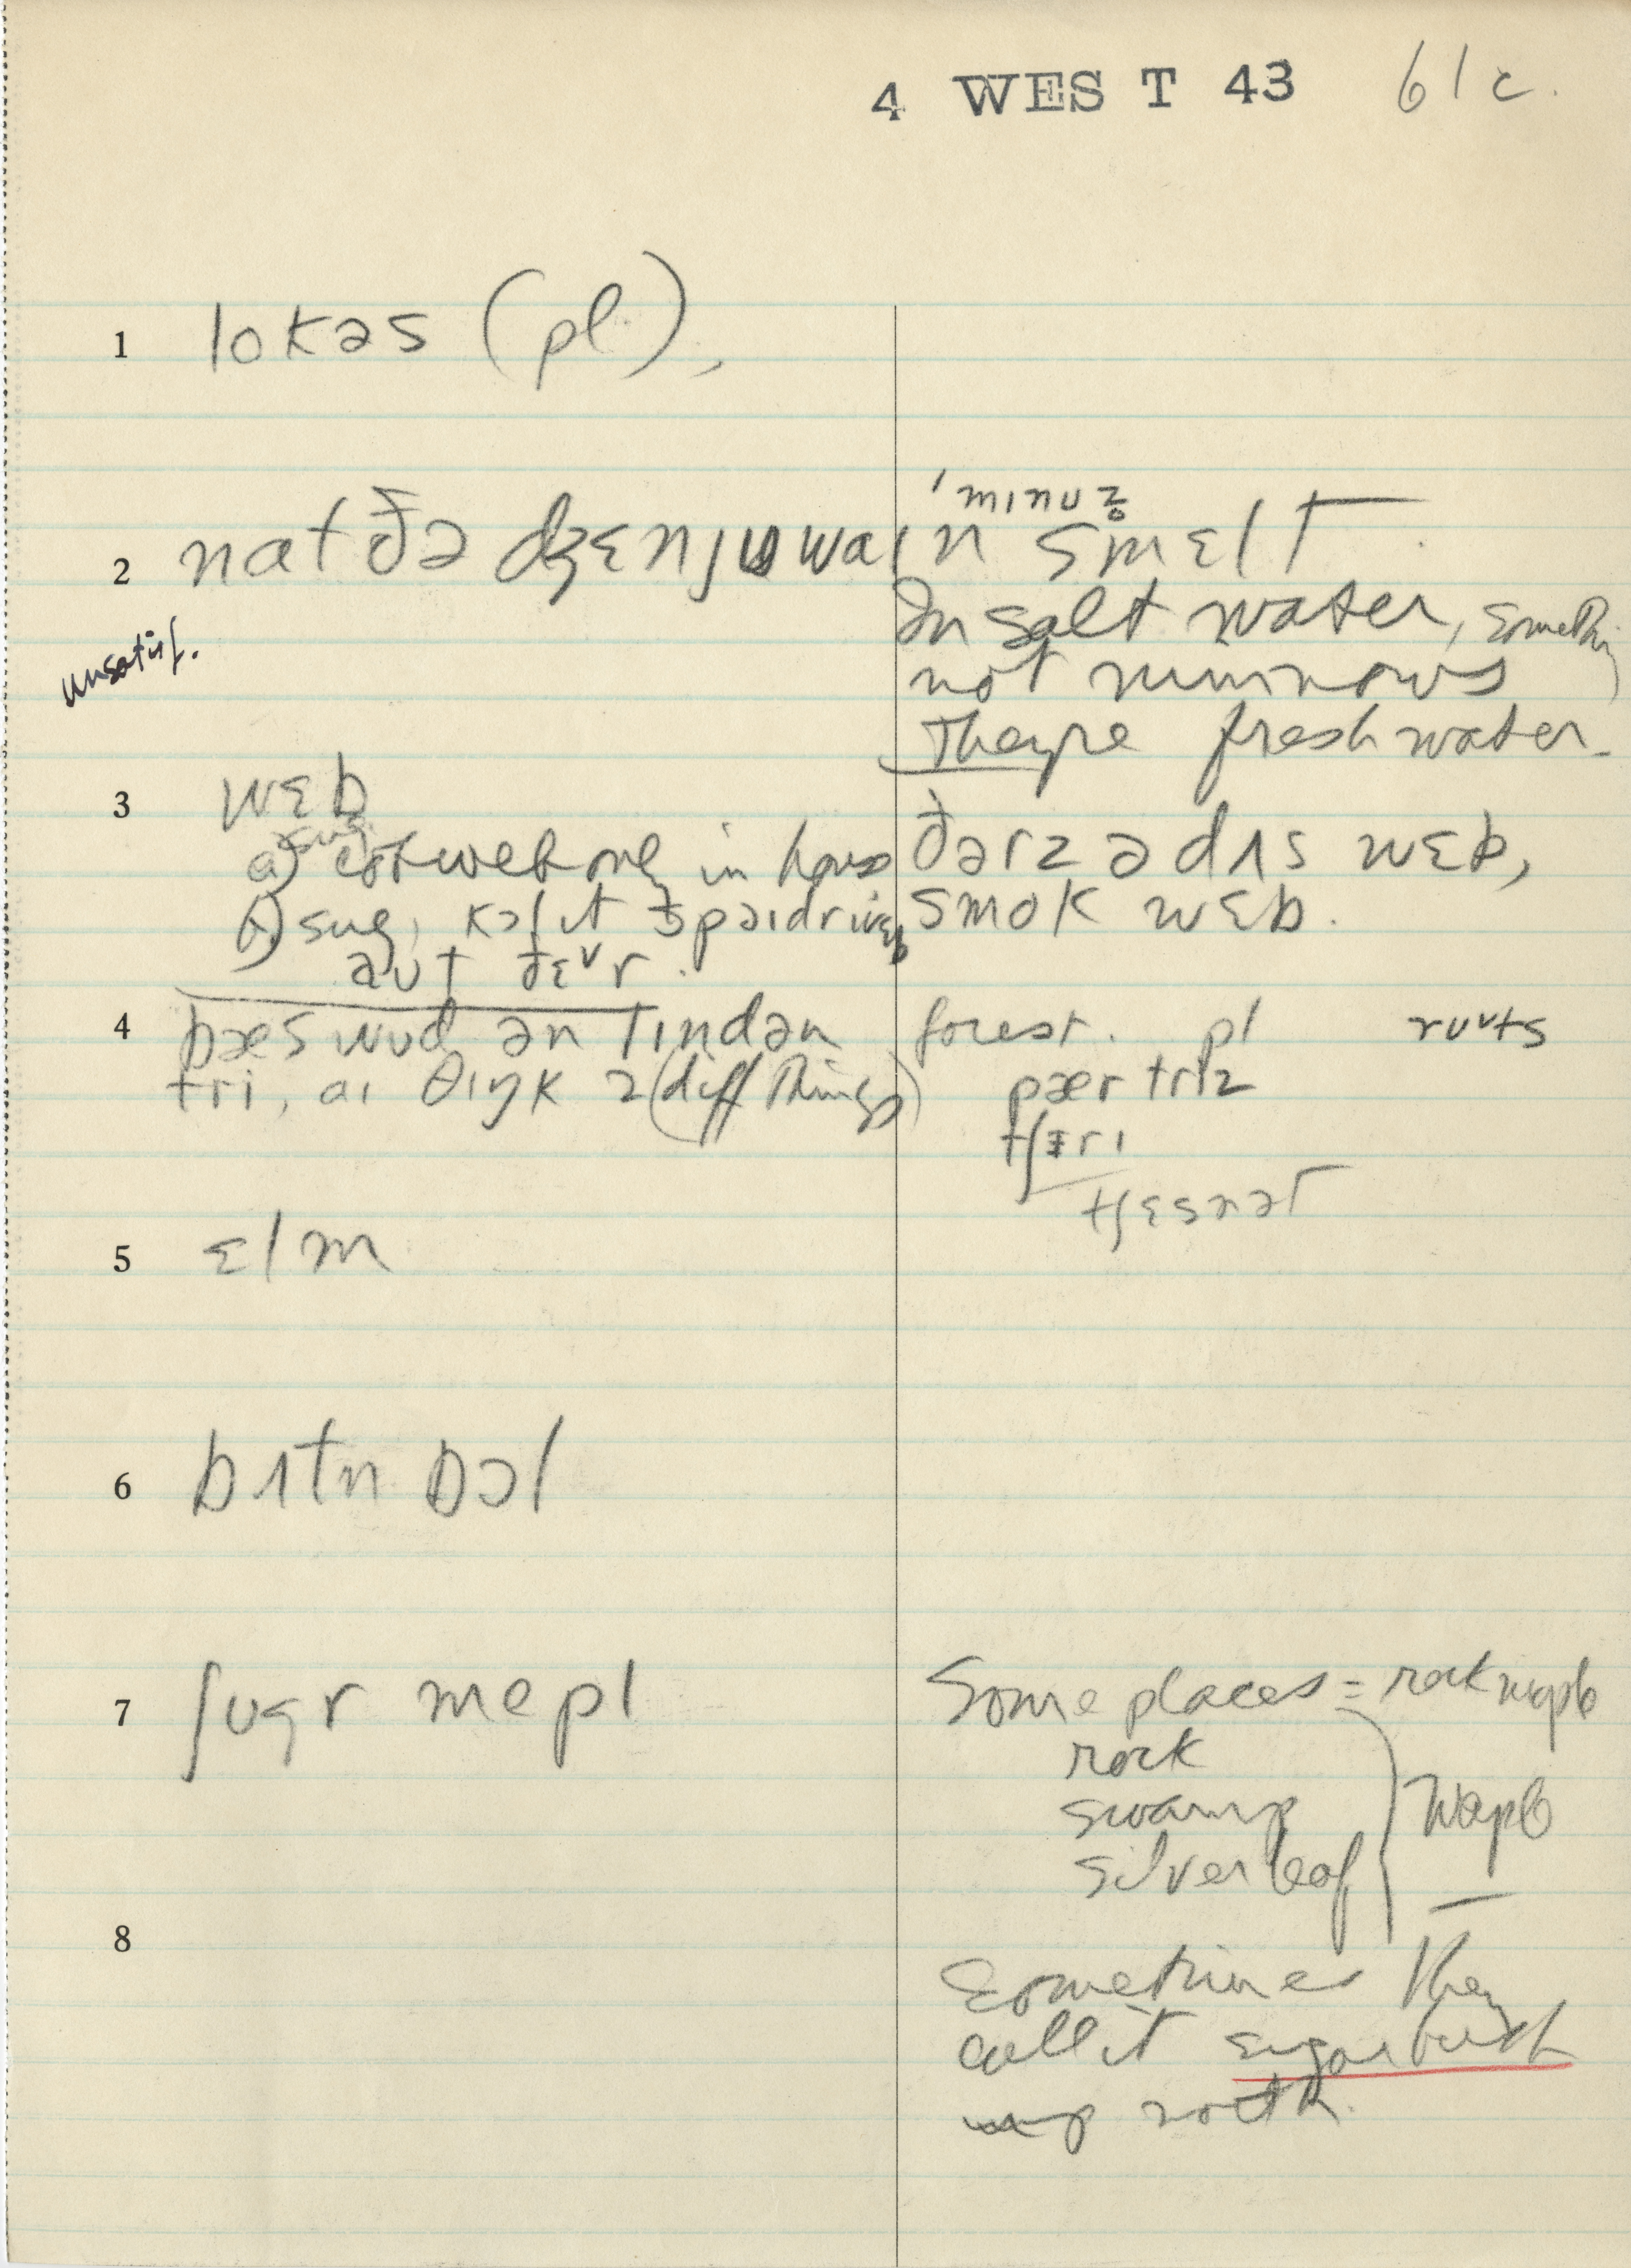 4 WEST 43 61c.
1 lokəs (pl.),
'mɪnuz̥
2 nat ðə dʒɛnjuwaɪn smɛlt.
In salt water, something
unsatisf.
not minnows
They're fresh water.
3 wɛb
ðərz ə dʌs wɛb,
a) cobweb only in house
smok wɛb.
b) sug. kɔl ɪt spaɪdr wɛb
aut
4 bæswud ən lɪndən
forest. pl ruʊts
tri, aɪ θɪŋk 2 (diff things)
pær triz
tʃɛri
tʃɛsnət
5 ɛlm
6 bʌtn bɔl
7 ʃugr mepl
Some places = rock maple
rock
swamp
silver leaf
maple
8
Sometimes they
call it sugarbush
up north.